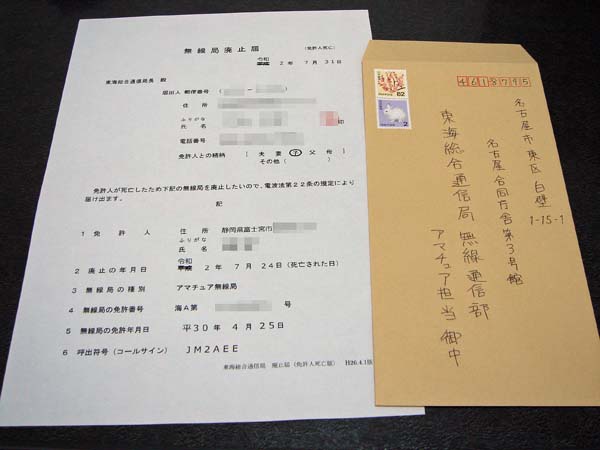 無線局廃止届
(免許人死亡)
令和
平成 2年 7月31日
東海総合通信局長 殿
届出人 郵便番号 ( - )
住所
ふりがな
氏名 印
電話番号
免許人との続柄 〔 夫 妻 子 父 母 〕
その他( )
免許人が死亡したため下記の無線局を廃止したいので、電波法第22条の規定により
届け出ます。
記
1 免許人 住所 静岡県富士宮市
ふりがな
氏名
令和
2 廃止の年月日 平成 2年 7月24日(死亡された日)
3 無線局の種別 アマチュア無線局
4 無線局の免許番号 海A第 号
5 無線局の免許年月日 平30年 4月25日
6 呼出符号(コールサイン) JM2AEE
東海総合通信局 廃止届(免許人死亡届) H26.4.1版
62
2
4618795
名古屋市東区白壁
1-15-1
名古屋合同庁舎第3号館
東海総合通信局 無線通信部
アマチュア担当 御中